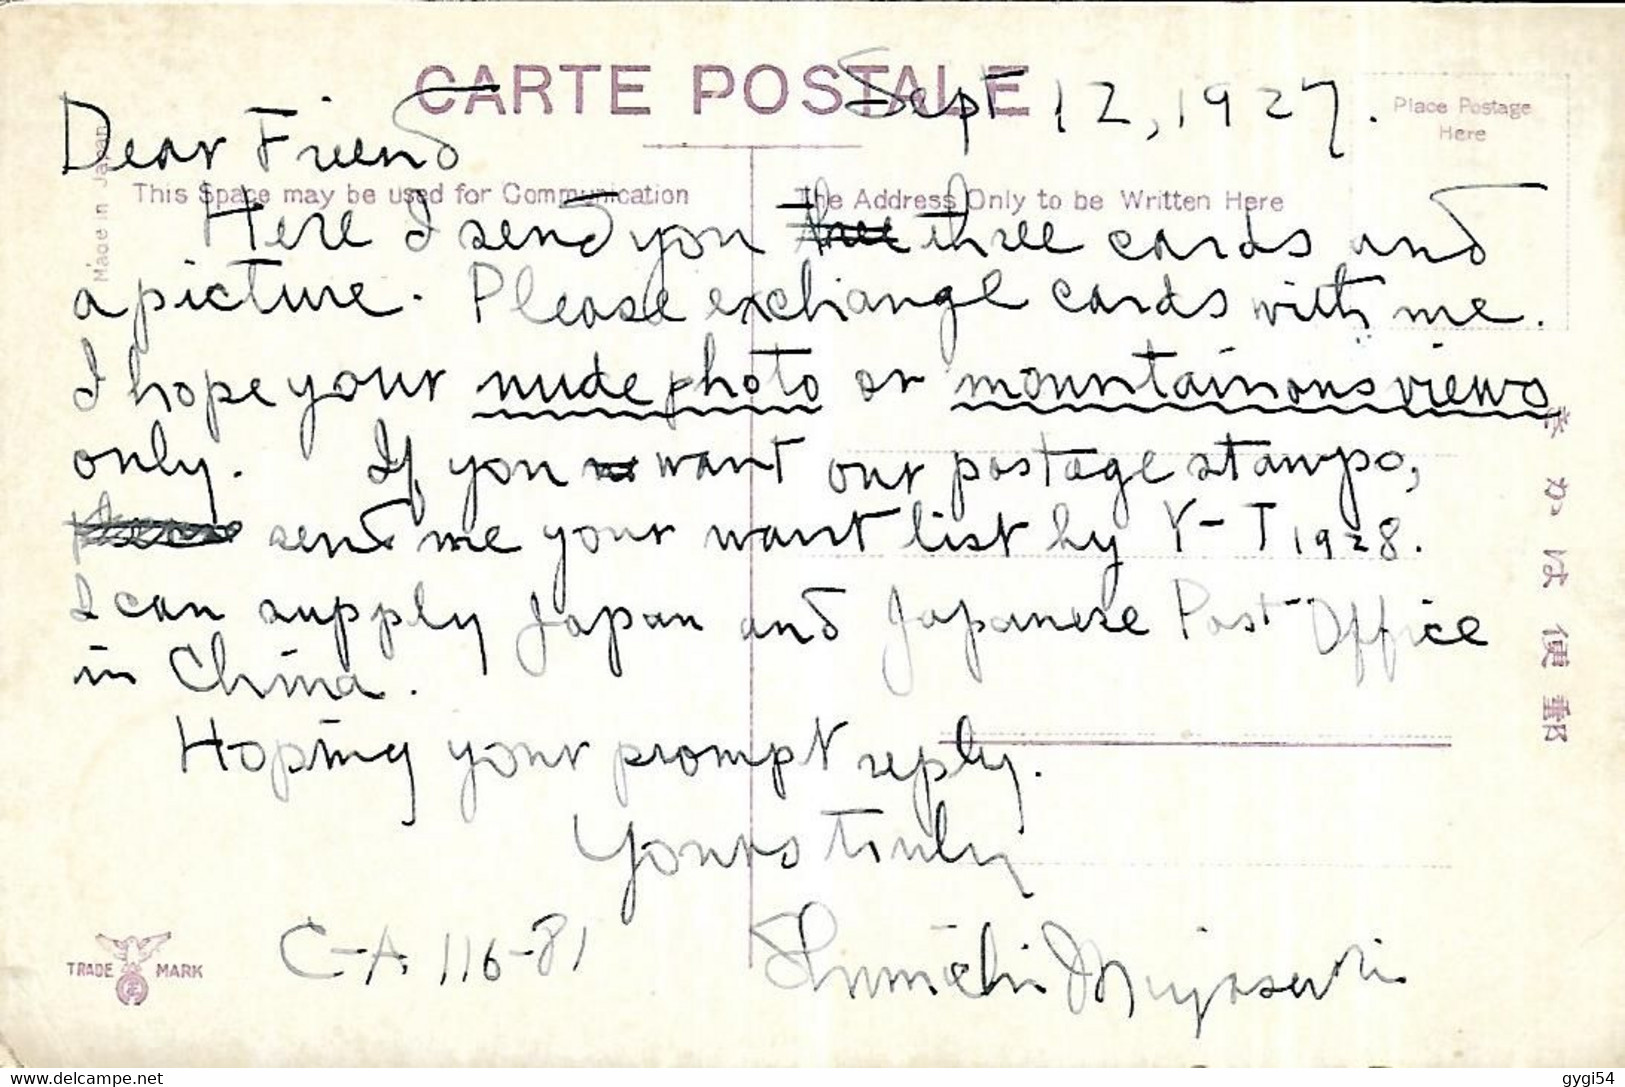 CARTE POSTALE
Place Postage
Here
Sept 12, 1927.
Dear Friend
Made in Japan
This Space may be used for Communication
The Address Only to be Written Here
Here I send you three three cards and
a picture. Please exchange cards with me.
I hope your nude photo or mountainous views
only. If you want our postage stamps,
send me your want list by Y-T 1928.
I can supply Japan and Japanese Post-Office
in China.
Hoping your prompt reply.
Yours truly
C-A 116-81
TRADE MARK
きかは便郵
www.delcampe.net
gygi54